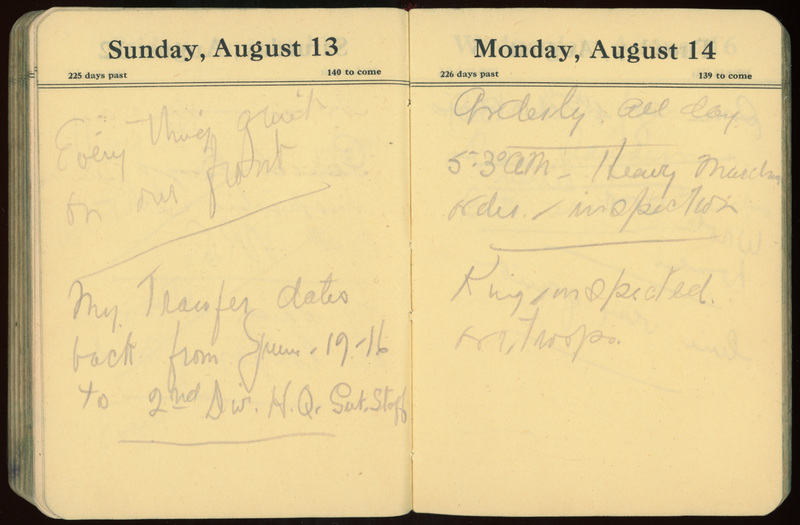 Sunday, August 13
225 days past 140 to come
Every thing quiet
on our front
My Transfer dates
back from June-19-16
to 2nd Div. H.Q. Sut. Staff
Monday, August 14
226 days past 139 to come
Orderly. all day.
5-30 AM - Heavy March
order / inspection
King inspected.
our troops.